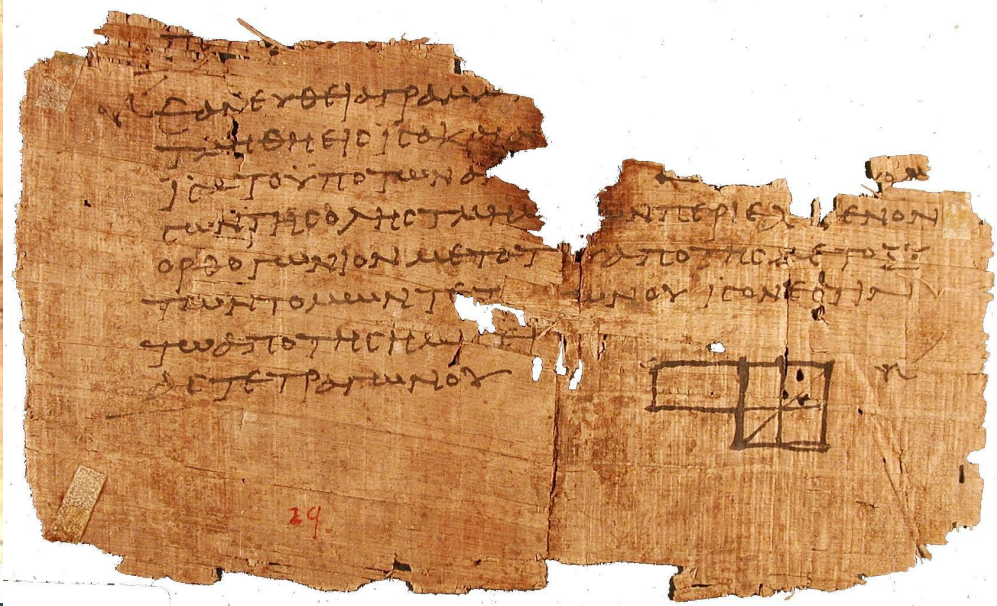 ΕΑΝΕΥΘΕΙΑΓΡΑΜΜ
ΤΜΗΘΗΕΙϹΙϹΑΚΑΙΑ
ΙϹΑΤΟΥΠΟΤΩΝΑ
ϹΩΝΤΗϹΟΛΗϹΤΜΗΜ ΩΝΠΕΡΙΕΧ ΜΕΝΟΝ
ΟΡΘΟΓΩΝΙΟΝΜΕΤΑΤΟΥ ΑΠΟΤΗϹΜΕΤΟΞΥ
ΤΩΝΤΟΜΩΝΤΕΤ ΩΝΟΥ ΙϹΟΝΕϹΤΙΝ
ΤΩΑΠΟΤΗϹΗΜΙϹΕΙ
ΑϹΤΕΤΡΑΓΩΝΟΥ
29